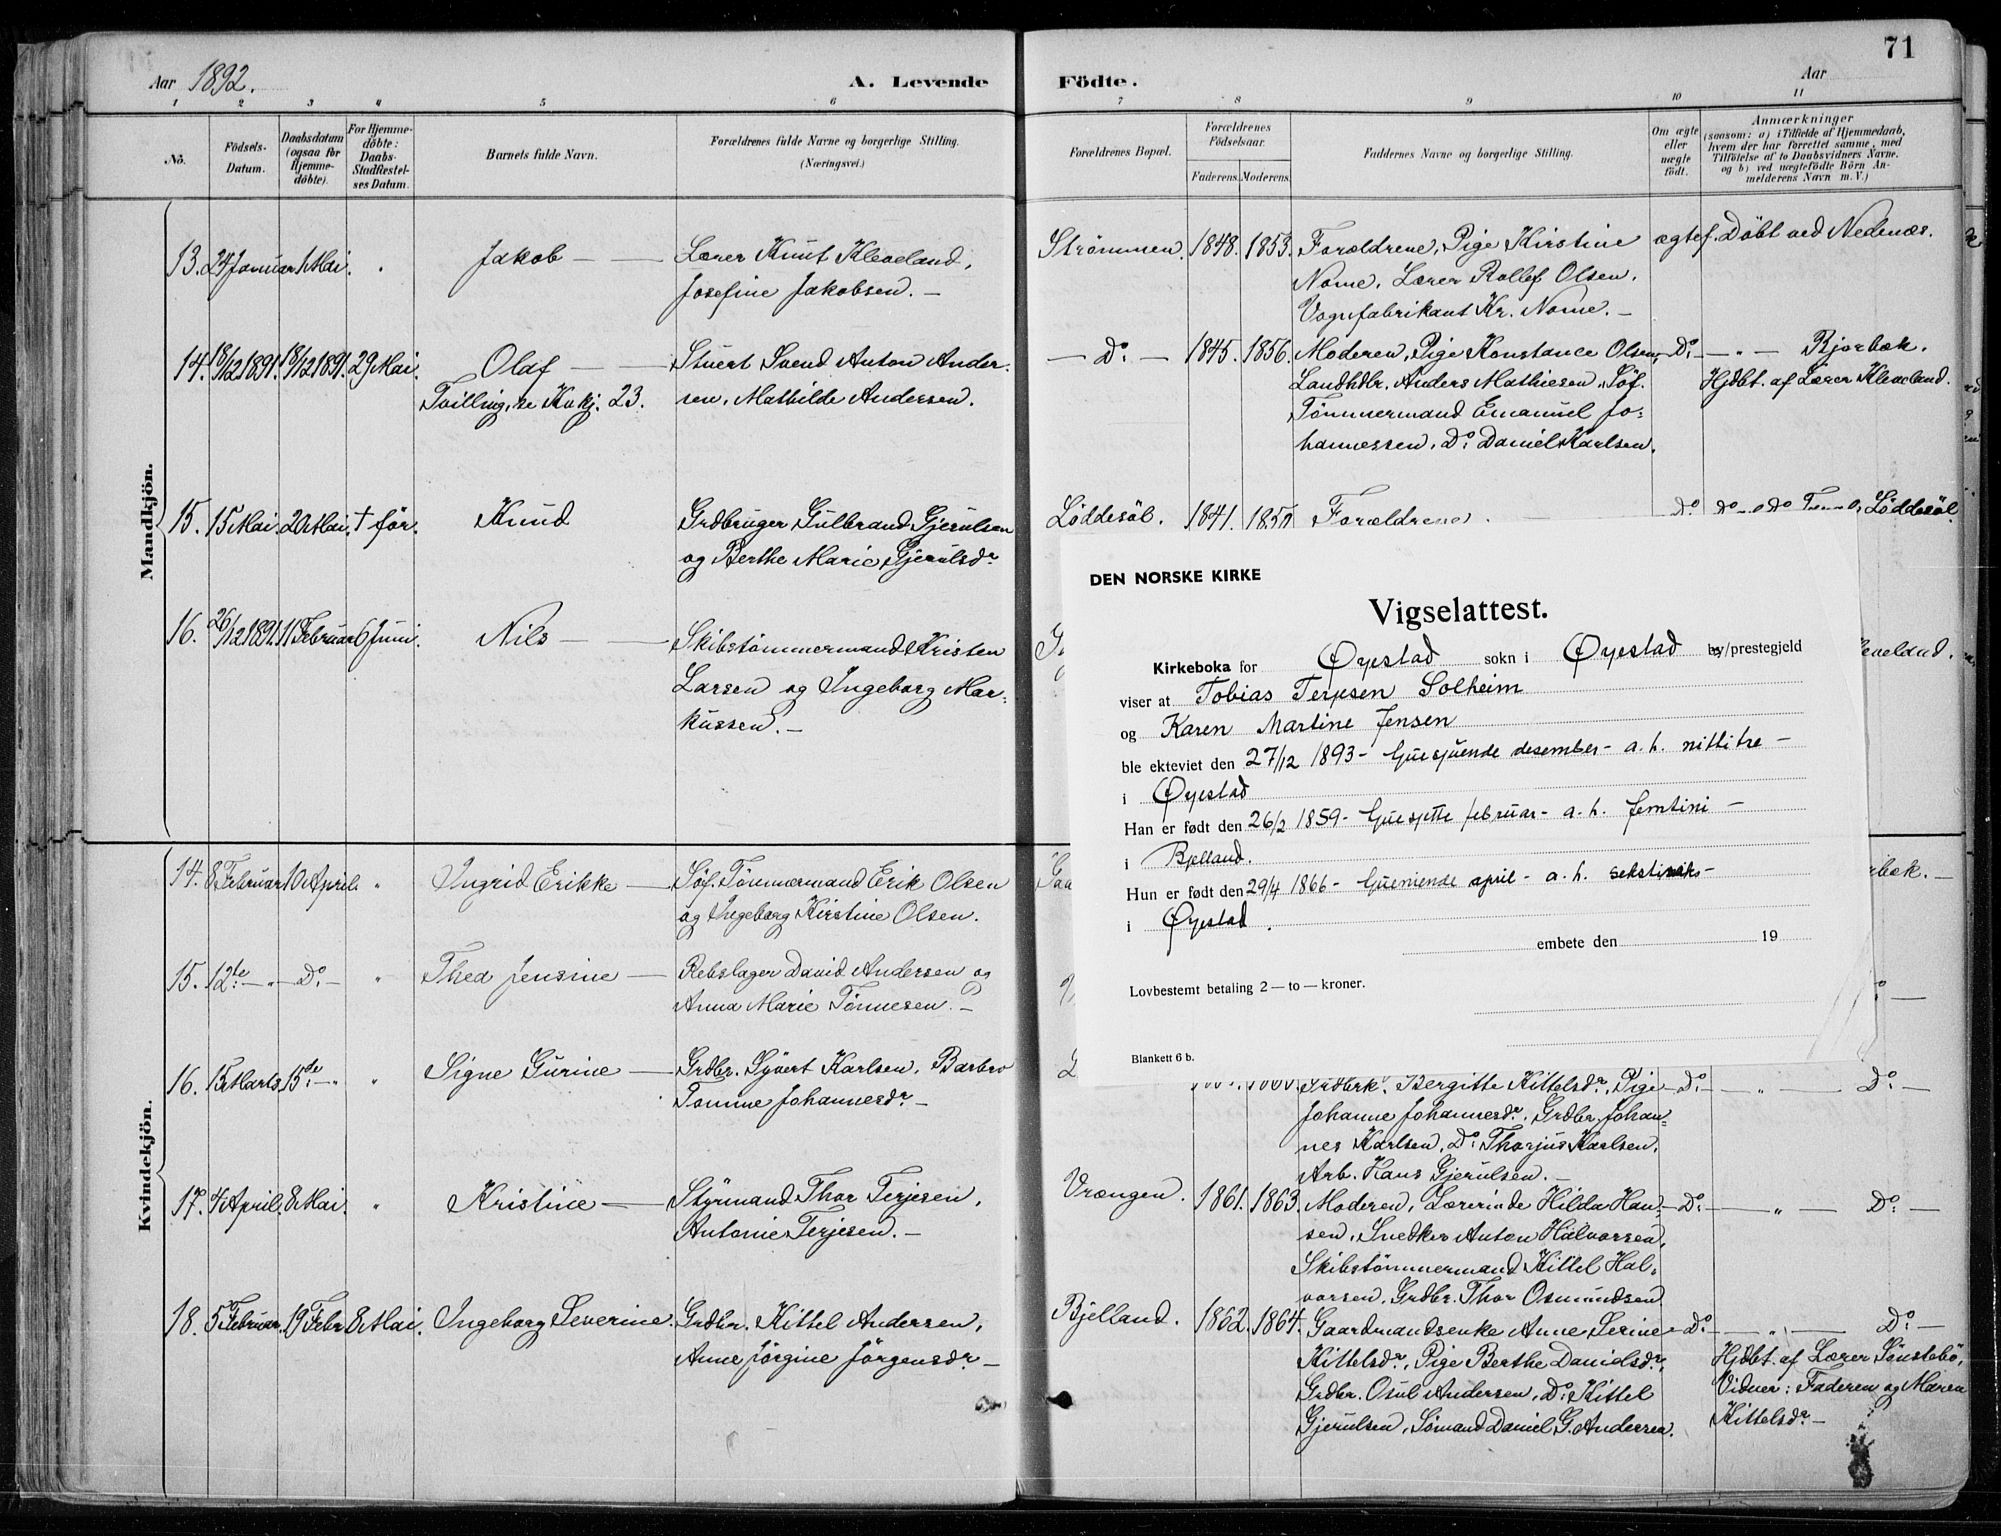 71
Aar 1892.
A. Levende
Födte.
Aar
1 2 3 4 5 6 7 8 9 10 11
No.
Födsels-
Datum.
Daabsdatum
(ogsaa for
Hjemme-
döbte).
For Hjemme-
döbte:
Daabs-
Stadfæstel-
ses Datum.
Barnets fulde Navn.
Forældrenes fulde Navne og borgerlige Stilling.
(Næringsvei.)
Forældrenes Bopæl.
Forældrenes
Födselsaar.
Faderens. Moderens.
Faddernes Navne og borgerlige Stilling.
Om ægte
eller
uægte
födt.
Anmærkninger
(saasom: a) i Tilfælde af Hjemmedaab,
hvem der har forrettet samme, med
Tilföielse af to Daabsvidners Navne.
og b) ved uægtefödte Börn An-
melderens Navn m. V.)
Mandkjön.
13. 24 Januar 1 Mai. " Jakob —
Lærer Knut Kleveland,
Josefine Jakobsen. —
Strømmen. 1848. 1853. Forældrene, Pige Kirstine
Nome, Lærer Rollef Olsen,
Vognfabrikant Kr. Nome. —
ægtef. Døbt ved Nedenæs.
14. 18/12 1891. 18/12 1891. 29 Mai. Olaf —
Tvilling, se Kvkj. 23.
Stuert Svend Anton Ander-
sen, Mathilde Andersen.
— Do: — 1845. 1856. Moderen, Pige Konstance Olsen,
Landhdlr. Anders Mathiesen, Søf.
Tømmermand Emanuel Jo-
hannessen, Do: Daniel Karlsen.
Do: — " — Bjorbæk.
Hjdbt. af Lærer Kleveland.
15. 15 Mai. 20 Mai. † før. Knud
Grdbruger Gulbrand Gjerulsen
og Berthe Marie Gjerulsdr
Løddesøl. 1841. 1851 Forældrene
Do. Løddesøl.
16. 26/12 1891. 11 Februar 6 Juni. Nils —
Skibstømmermand Kristen
Larsen og Ingeborg Mar-
kussen. —
Kvindekjön.
14. 8 Februar 10 April. " Ingrid Erikke —
Søf. Tømmermand Erik Olsen
og Ingeborg Kirstine Olsen.
15. 12te — " — Do: — " Thea Jensine —
Rebslager David Andersen og
Anna Marie Tønnesen. —
16. 15 Marts 15de — " " Signe Gurine —
Grdbr. Syvert Karlsen, Barbro
Tomine Johannesdr —
Grdbrk. Bergitte Kittelsdr, Pige
Johanne Johannesdr, Grdbr. Johan-
nes Karlsen, Do: Thorjus Karlsen,
Arb. Hans Gjerulsen. —
— Do: — " — Do: —
17. 4 April. 8 Mai. " Kristine —
Styrmand Thor Terjesen,
Antonie Terjesen. —
Vrængen. 1861. 1863. Moderen, Lærerinde Hilda Han-
sen, Snedker Anton Halvorsen,
Skibstømmermand Kittel Hal-
vorsen, Grdbr. Thor Osmundsen
— Do: — " — Do: —
18. 5 Februar. 19 Febr 8 Mai. Ingeborg Severine.
Grdbr. Kittel Andersen,
Anne Jørgine Jørgensdr —
Bjelland. 1862. 1864. Gaardmandsenke Anne Serine
Kittelsdr, Pige Berthe Danielsdr,
Grdbr. Osul Andersen, Do: Kittel
Gjerulsen, Sømand Daniel G. Andersen.
Do: — " — Do: —
Hjdbt. af Lærer Sønstebø,
Vidner: Faderen og Maren
Kittelsdr —
DEN NORSKE KIRKE
Vigselattest.
Kirkeboka for Øyestad sokn i Øyestad by/prestegjeld
viser at Tobias Terjesen Solheim
og Karen Martine Jensen
ble ekteviet den 27/12 1893 - tjuesjuende desember - a. h. nittitre -
i Øyestad
Han er født den 26/2 1859 - tjuesjette februar - a. h. femtini -
i Bjelland.
Hun er født den 29/4 1866 - tjueniende april - a. h. sekstiseks -
i Øyestad.
embete den 19
Lovbestemt betaling 2 — to — kroner.
Blankett 6 b.